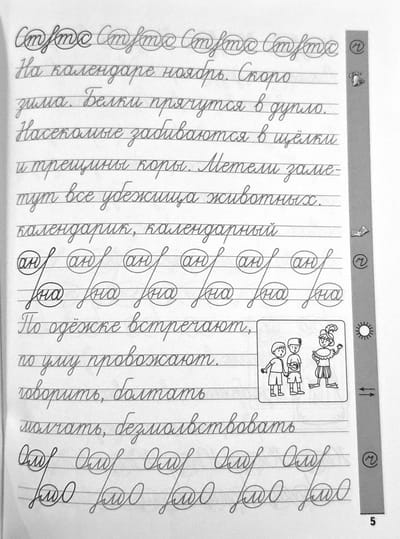 На календаре ноябрь. Скоро
зима. Белки прячутся в дупло.
Насекомые забиваются в щёлки
и трещины коры. Метели заме-
тут все убежища животных.
календарик, календарный
ан ан ан ан ан ан
на на на на на на
По одёжке встречают,
по уму провожают.
говорить, болтать
молчать, безмолвствовать
5